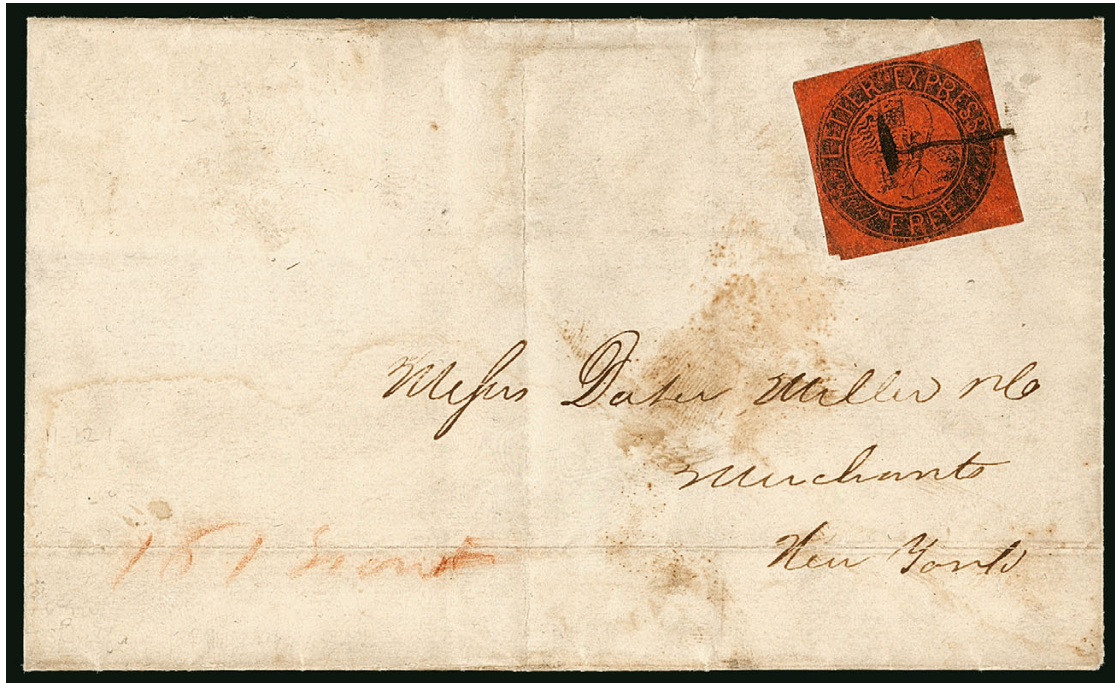 LETTER EXPRESS
FREE
Messrs Dater Miller & Co
Merchants
New York
181 Front